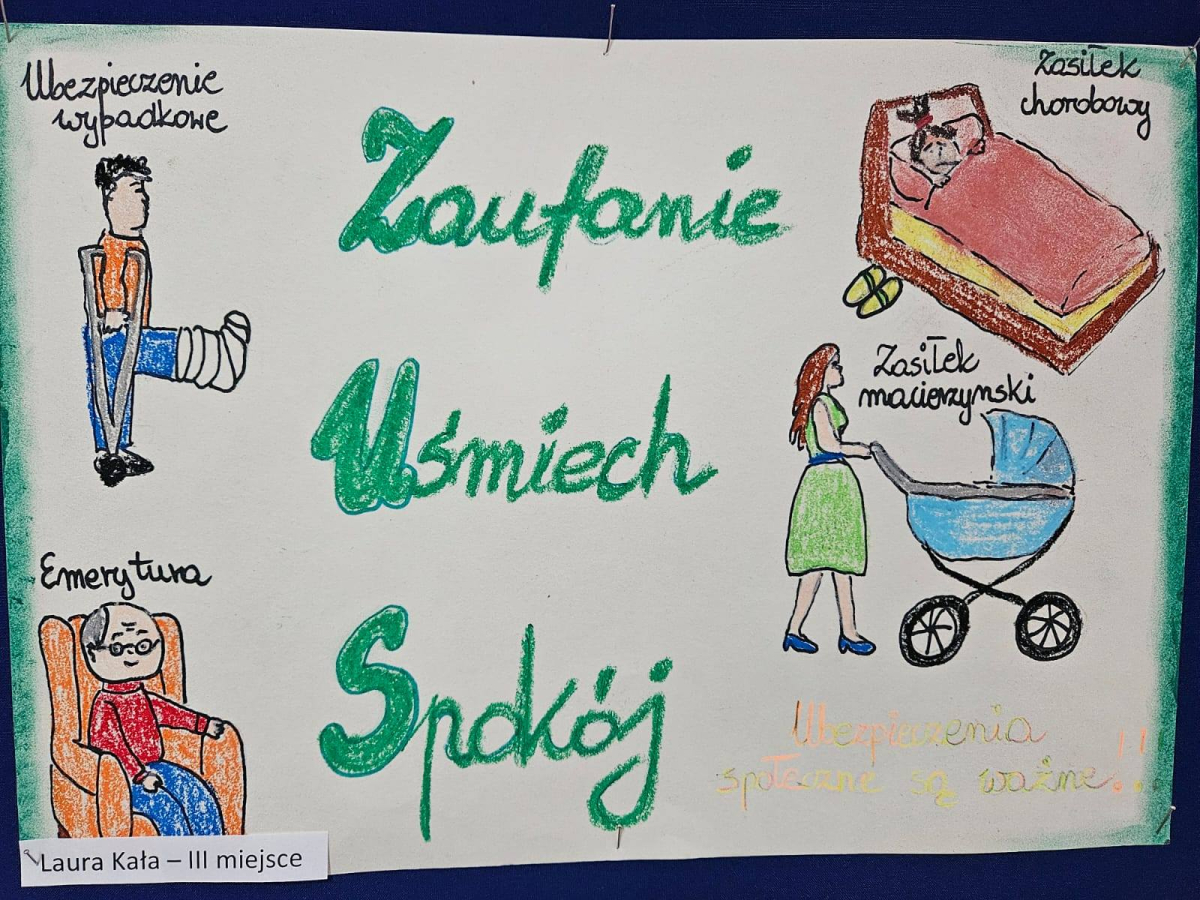 Ubezpieczenie
wypadkowe
Zasiłek
chorobowy
Zaufanie
Zasiłek
macierzynski
Uśmiech
Emerytura
Spokój
Ubezpieczenia
społeczne są ważne!!
Laura Kała – III miejsce